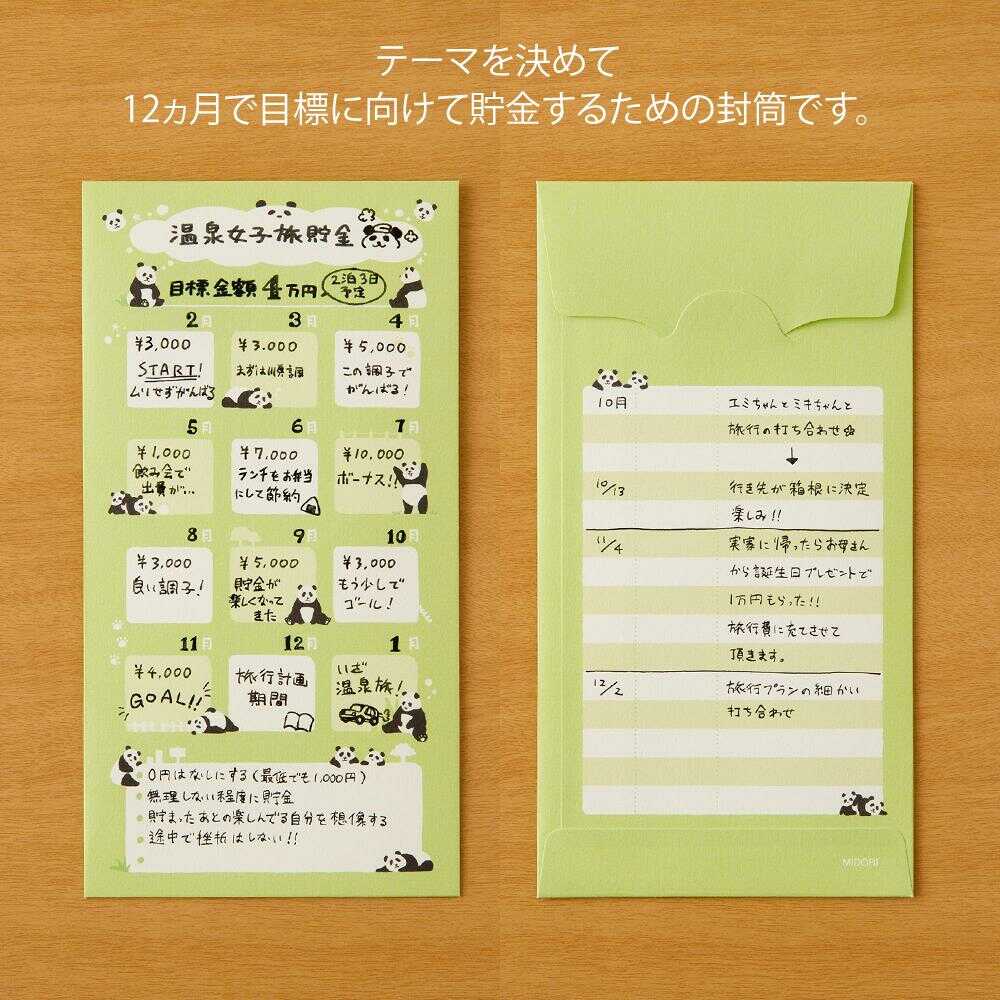 テーマを決めて
12ヵ月で目標に向けて貯金するための封筒です。
温泉女子旅貯金
目標金額4万円
2泊3日
予定
2月
3月
4月
¥3,000
START!
ムリせずがんばる
¥3.000
まずは順調
¥5,000
この調子で
がんばる!
5月
6月
7月
¥1,000
飲み会で
出費が…
¥7,000
ランチをお弁当
にして節約
¥10,000
ボーナス!!
8月
9月
10月
¥3,000
良い調子!
¥5,000
貯金が
楽しくなって
きた
¥3,000
もう少しで
ゴール!
11月
12月
1月
¥4,000
GOAL!!
旅行計画
期間
いざ
温泉旅!
0円はなしにする(最低でも1,000円)
無理しない程度に貯金
貯まったあとの楽しんでる自分を想像する
途中で挫折はしない!!
10月 エミちゃんとミキちゃんと
旅行の打ち合わせ
↓
10/13 行き先が箱根に決定
楽しみ!!
11/4 実家に帰ったらお母さん
から誕生日プレゼントで
1万円もらった!!
旅行費に充てさせて
頂きます。
12/2 旅行プランの細かい
打ち合わせ
MIDORI